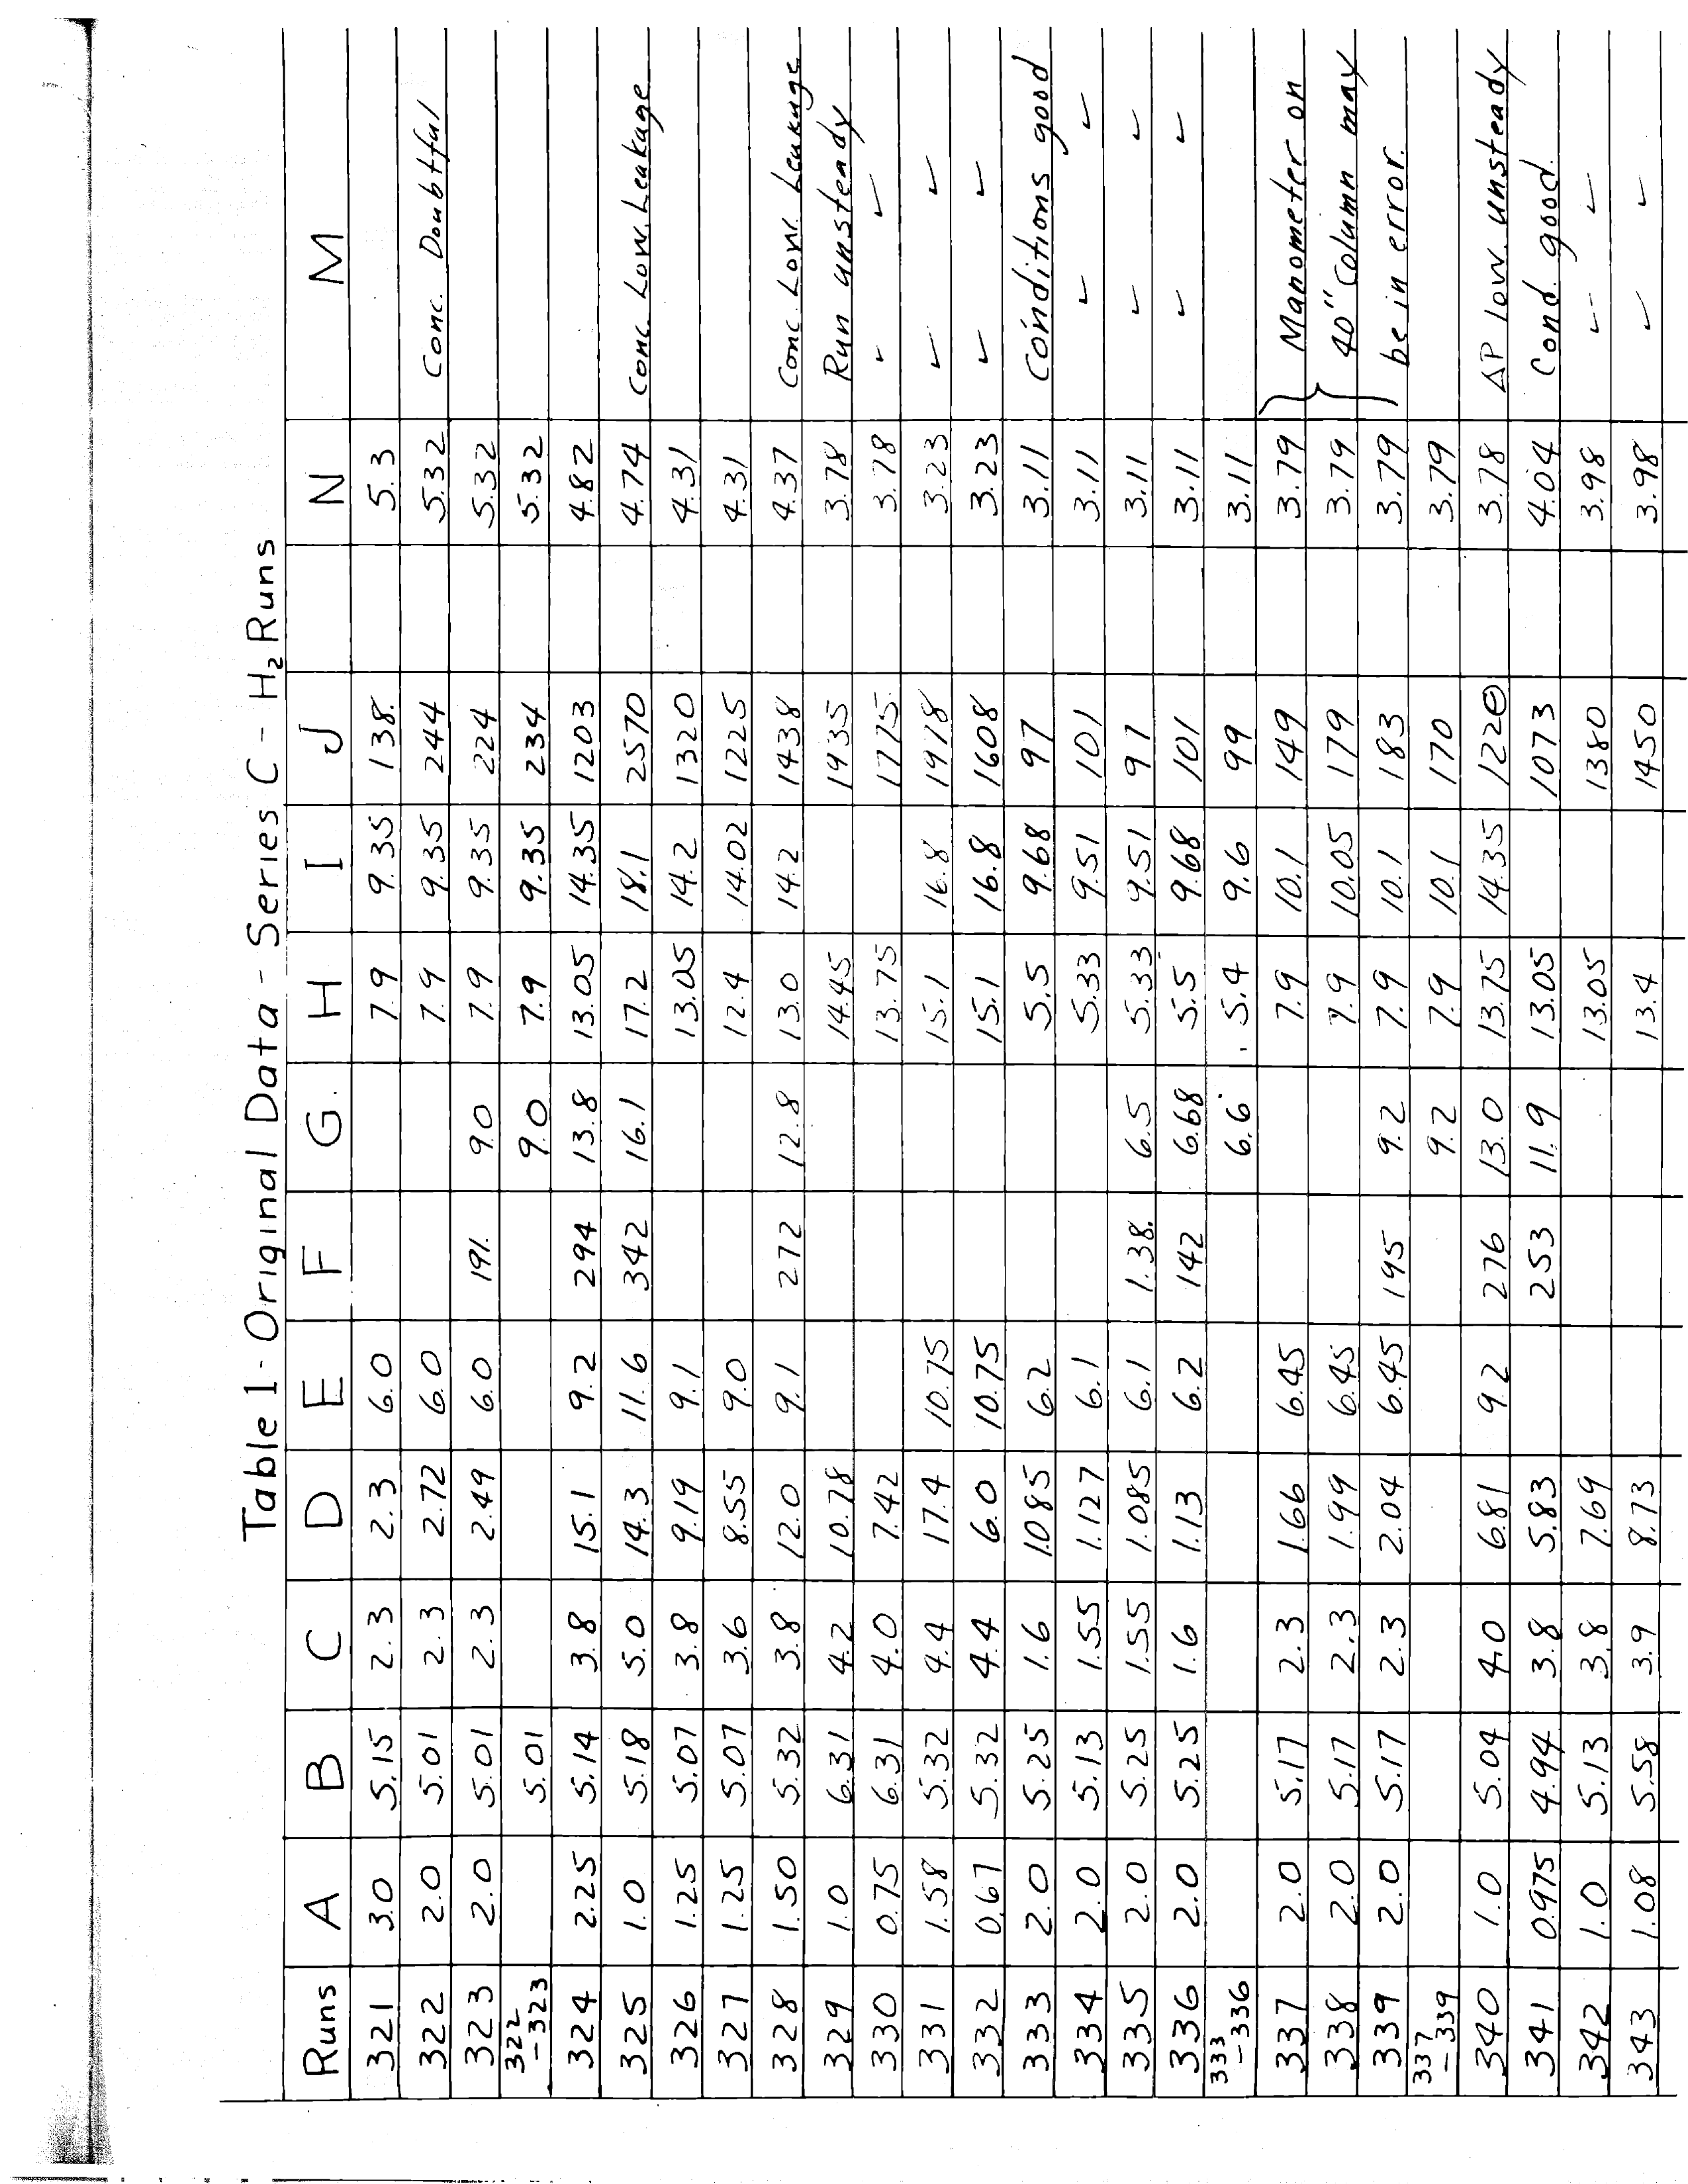 Table 1 - Original Data - Series C - H₂ Runs
Runs A B C D E F G. H I J N M
321 3.0 5.15 2.3 2.3 6.0 7.9 9.35 138. 5.3
322 2.0 5.01 2.3 2.72 6.0 7.9 9.35 244 5.32 Conc. Doubtful
323 2.0 5.01 2.3 2.49 6.0 191. 9.0 7.9 9.35 224 5.32
322-323 5.01 9.0 7.9 9.35 234 5.32
324 2.25 5.14 3.8 15.1 9.2 294 13.8 13.05 14.35 1203 4.82
325 1.0 5.18 5.0 14.3 11.6 342 16.1 17.2 18.1 2570 4.74 Conc. Low. Leakage
326 1.25 5.07 3.8 9.19 9.1 13.05 14.2 1320 4.31
327 1.25 5.07 3.6 8.55 9.0 12.4 14.02 1225 4.31
328 1.50 5.32 3.8 12.0 9.1 272 12.8 13.0 14.2 1438 4.37 Conc. Low. Leakage
329 1.0 6.31 4.2 10.78 14.45 1935 3.78 Run unsteady
330 0.75 6.31 4.0 7.42 13.75 1775. 3.78 ✓ ✓
331 1.58 5.32 4.4 17.4 10.75 15.1 16.8 1978 3.23 ✓ ✓
332 0.67 5.32 4.4 6.0 10.75 15.1 16.8 1608 3.23 ✓ ✓
333 2.0 5.25 1.6 1.085 6.2 5.5 9.68 97 3.11 Conditions good
334 2.0 5.13 1.55 1.127 6.1 5.33 9.51 101 3.11 ✓ ✓
335 2.0 5.25 1.55 1.085 6.1 1.38. 6.5 5.33 9.51 97 3.11 ✓ ✓
336 2.0 5.25 1.6 1.13 6.2 142 6.68 5.5 9.68 101 3.11 ✓ ✓
333-336 6.6 5.4 9.6 99 3.11
337 2.0 5.17 2.3 1.66 6.45 7.9 10.1 149 3.79 Manometer on
338 2.0 5.17 2.3 1.99 6.45 7.9 10.05 179 3.79 40" column may
339 2.0 5.17 2.3 2.04 6.45 195 9.2 7.9 10.1 183 3.79 be in error.
337-339 9.2 7.9 10.1 170 3.79
340 1.0 5.04 4.0 6.81 9.2 276 13.0 13.75 14.35 1220 3.78 ΔP low. unsteady
341 0.975 4.94 3.8 5.83 253 11.9 13.05 1073 4.04 Cond. good.
342 1.0 5.13 3.8 7.69 13.05 1380 3.98 ✓ ✓
343 1.08 5.58 3.9 8.73 13.4 1450 3.98 ✓ ✓